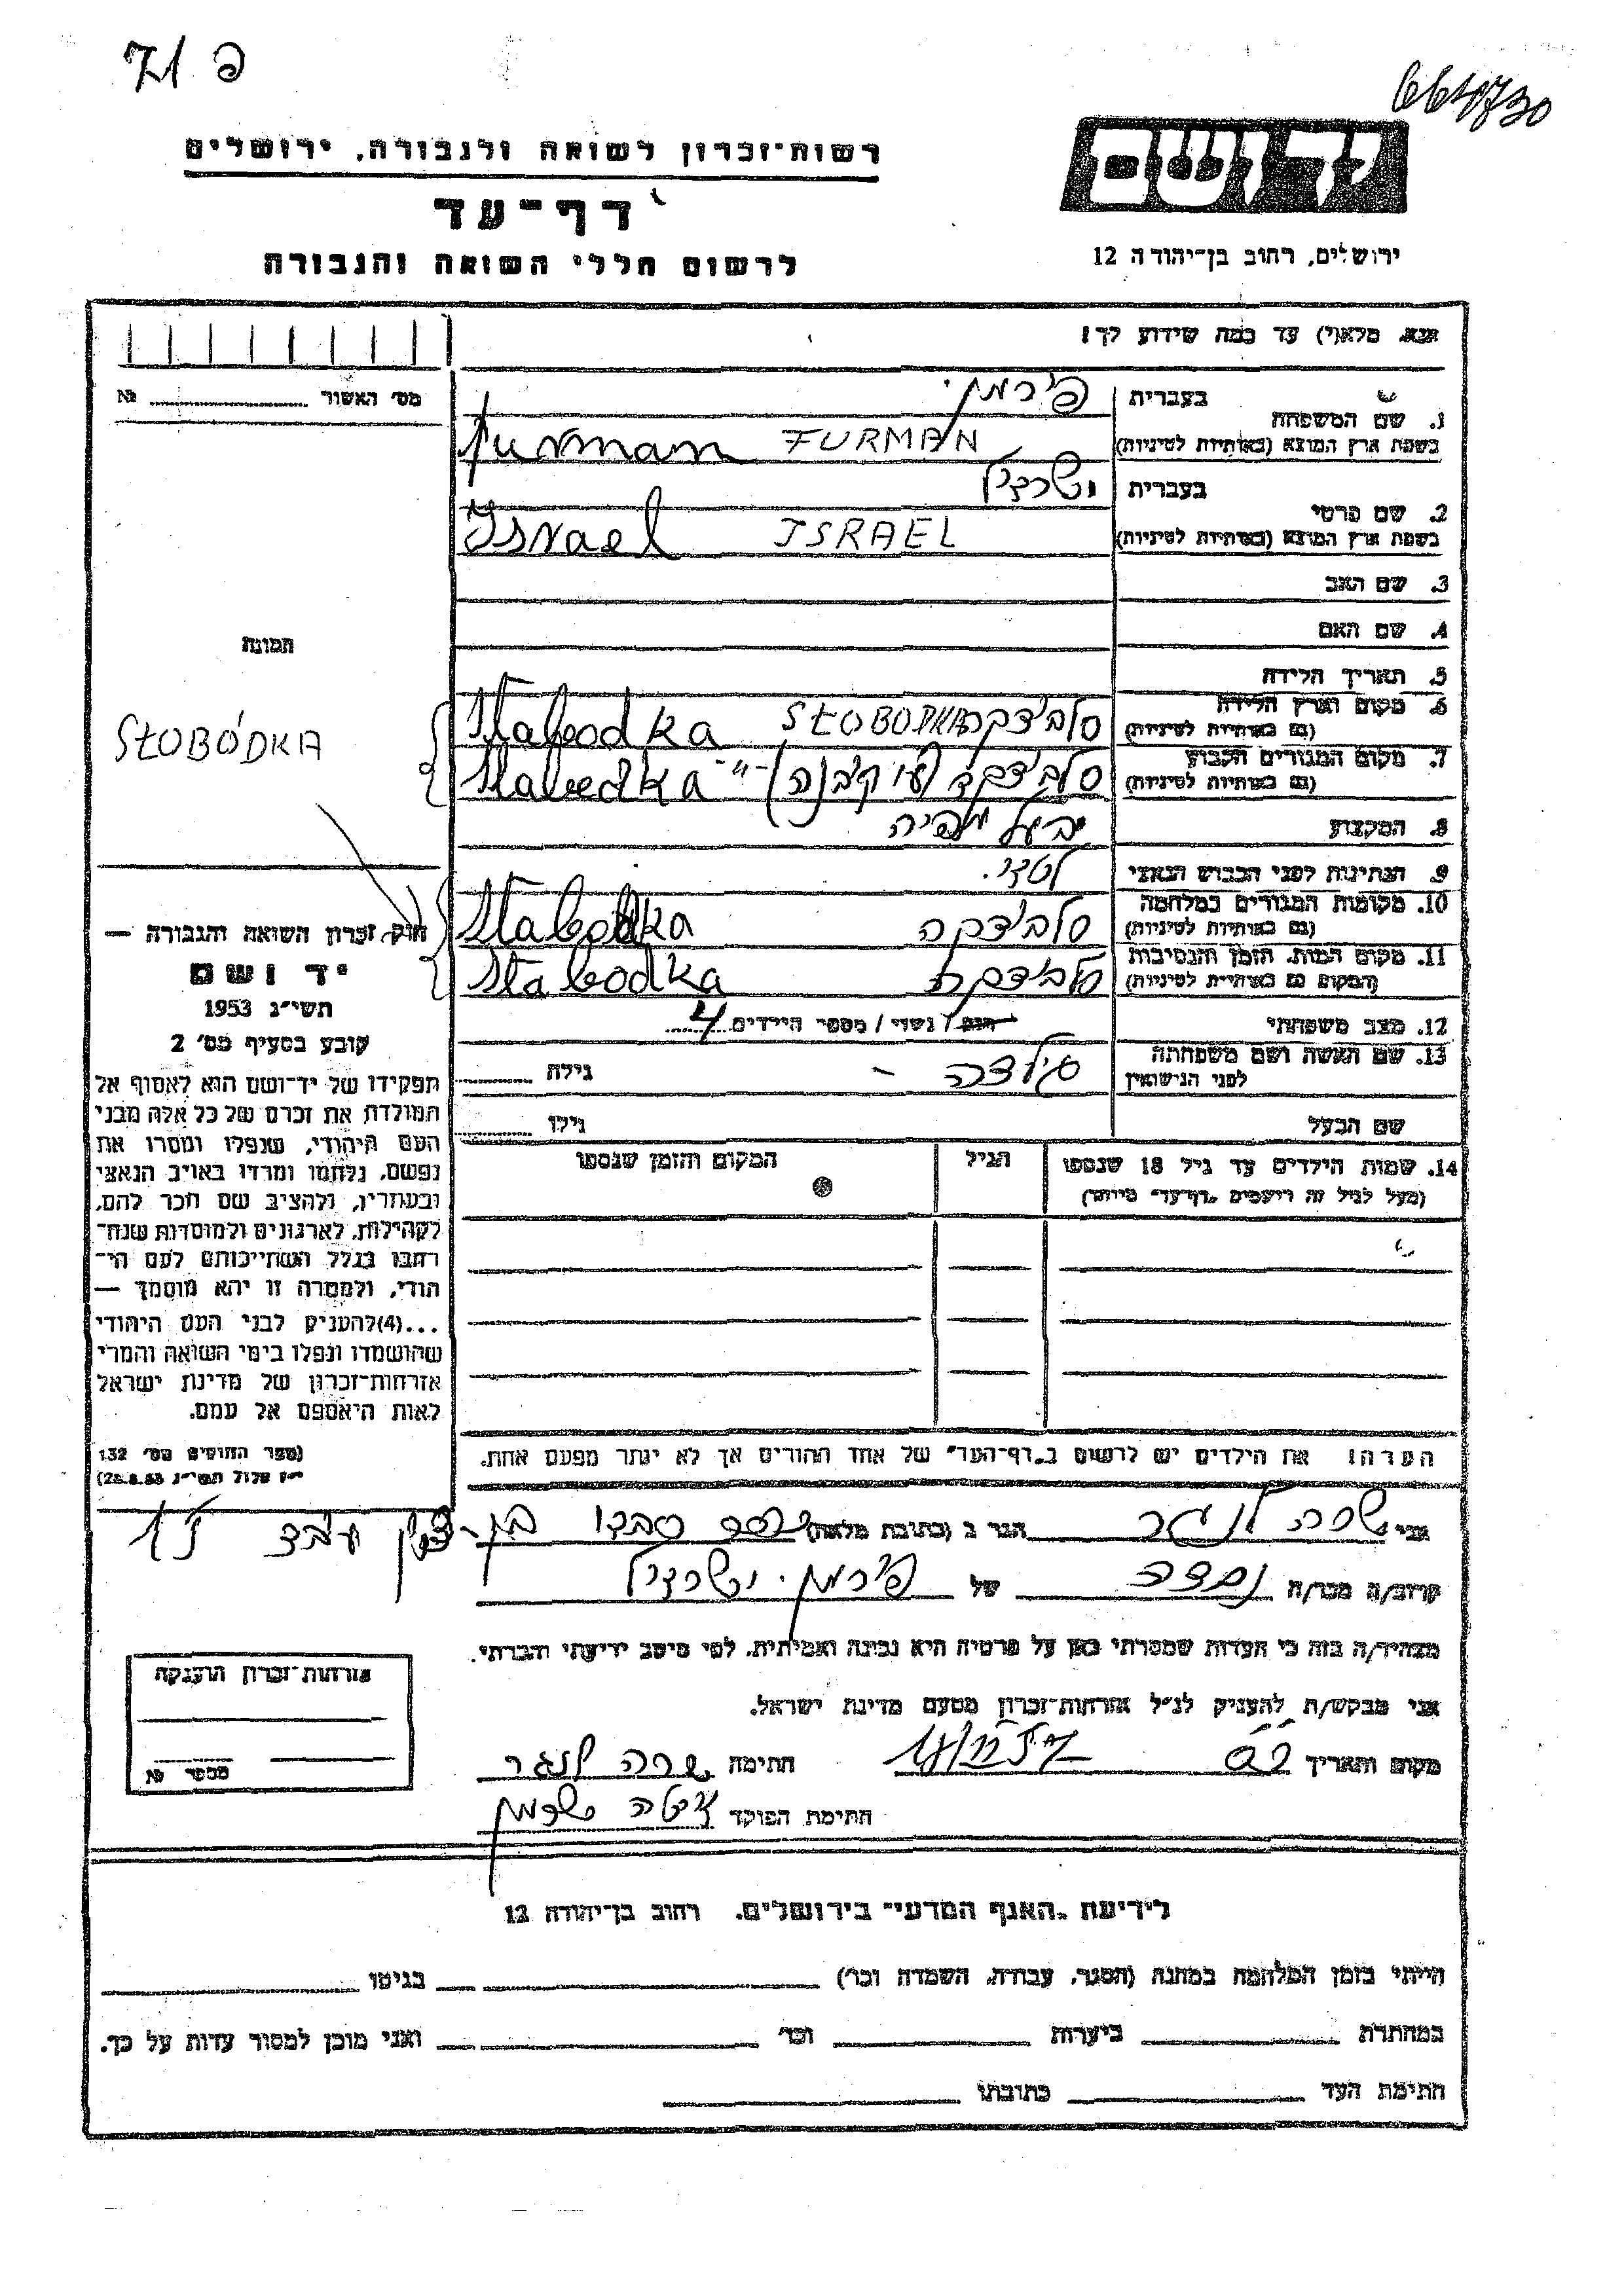 71 פ
664730
רשות־זכרון לשואה ולגבורה, ירושלים
דף־עד
לרשום חללי השואה והגבורה
ירושלים, רחוב בן־יהודה 12
אנא מלא(י) עד כמה שידוע לך!
מס׳ האשור № 
1. שם המשפחה
בעברית פירמן
בשפת ארץ המוצא (באותיות לטיניות) FURMAN Furman
2. שם פרטי
בעברית ישראל
בשפת ארץ המוצא (באותיות לטיניות) ISRAEL Israel
3. שם האב
4. שם האם
תמונה
5. תאריך הלידה
6. מקום וארץ הלידה
(גם באותיות לטיניות) סלבודקה SŁOBÓDKA Slabodka
SŁOBÓDKA
7. מקום המגורים הקבוע
(גם באותיות לטיניות) סלבודקה -"- Slabodka
8. המקצוע בעל מאפיה
9. הנתינות לפני הכבוש הנאצי
10. מקומות המגורים במלחמה
(גם באותיות לטיניות) סלבודקה Slabodka
11. מקום המות, הזמן והנסיבות
(המקום גם באותיות לטיניות) סלבודקה Slabodka
12. מצב משפחתי רווק / נשוי / מספר הילדים 4
13. שם האשה ושם משפחתה
לפני הנישואין גולדה - גילה
שם הבעל גילו
14. שמות הילדים עד גיל 18 שנספו הגיל המקום והזמן שנספו
(מעל לגיל זה רושמים „דף־עד״ מיוחד)
הערה! את הילדים יש לרשום ב„דף־העד״ של אחד ההורים אך לא יותר מפעם אחת.
חוק זכרון השואה והגבורה —
יד ושם
תשי״ג 1953
קובע בסעיף מס׳ 2
תפקידו של יד־ושם הוא לאסוף אל
המולדת את זכרם של כל אלה מבני
העם היהודי, שנפלו ומסרו את
נפשם, נלחמו ומרדו באויב הנאצי
ובעוזריו, ולהציב שם וזכר להם,
לקהילות, לארגונים ולמוסדות שנח־
רבו בגלל השתייכותם לעם הי־
הודי, ולמטרה זו יהא מוסמך —
...(4) להעניק לבני העם היהודי
שהושמדו ונפלו בימי השואה והמרי
אזרחות־זכרון של מדינת ישראל
לאות היאספם אל עמם.
(ספר החוקים מס׳ 132
י״ז אלול תשי״ג 28.8.53)
אני שרה לנגר הגר ב (כתובת מלאה)
קרוב/ה מכר/ה נכדה של פירמן ישראל
מצהיר/ה בזה כי העדות שמסרתי כאן על פרטיה היא נכונה ואמיתית, לפי מיטב ידיעתי והכרתי.
אני מבקש/ת להעניק לנ״ל אזרחות־זכרון מטעם מדינת ישראל.
מקום ותאריך חתימה שרה לנגר
חתימת הפוקד
אזרחות־זכרון הוענקה
מספר №
לידיעת „האגף המדעי״ בירושלים, רחוב בן־יהודה 12
הייתי בזמן המלחמה במחנה (הסגר, עבודה, השמדה וכו׳) בגיטו
במחתרת ביערות וכו׳ ואני מוכן למסור עדות על כך.
חתימת העד כתובתו